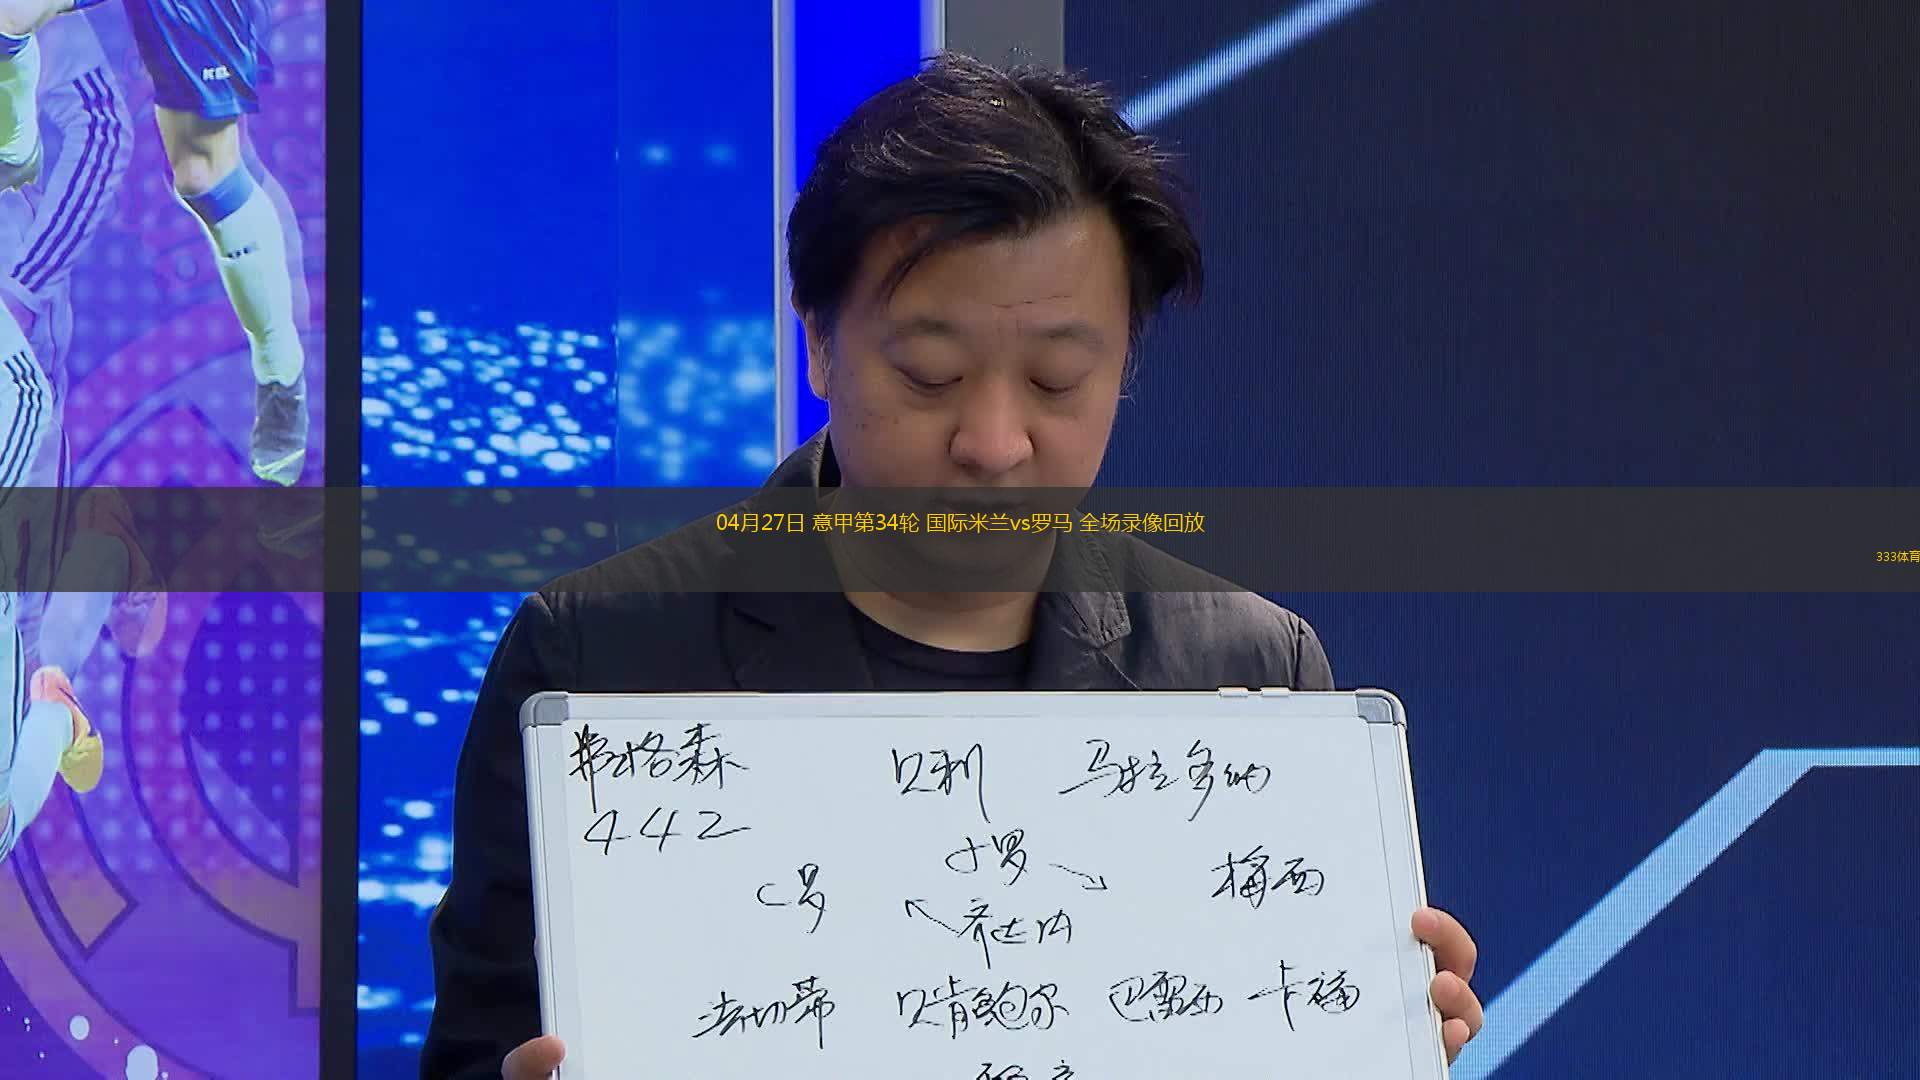 04月27日 意甲第34轮 国际米兰vs罗马 全场录像回放
333体育
弗格森 贝利 马拉多纳
442
小罗
C罗 梅西
齐达内
法切蒂 贝肯鲍尔 巴雷西 卡福